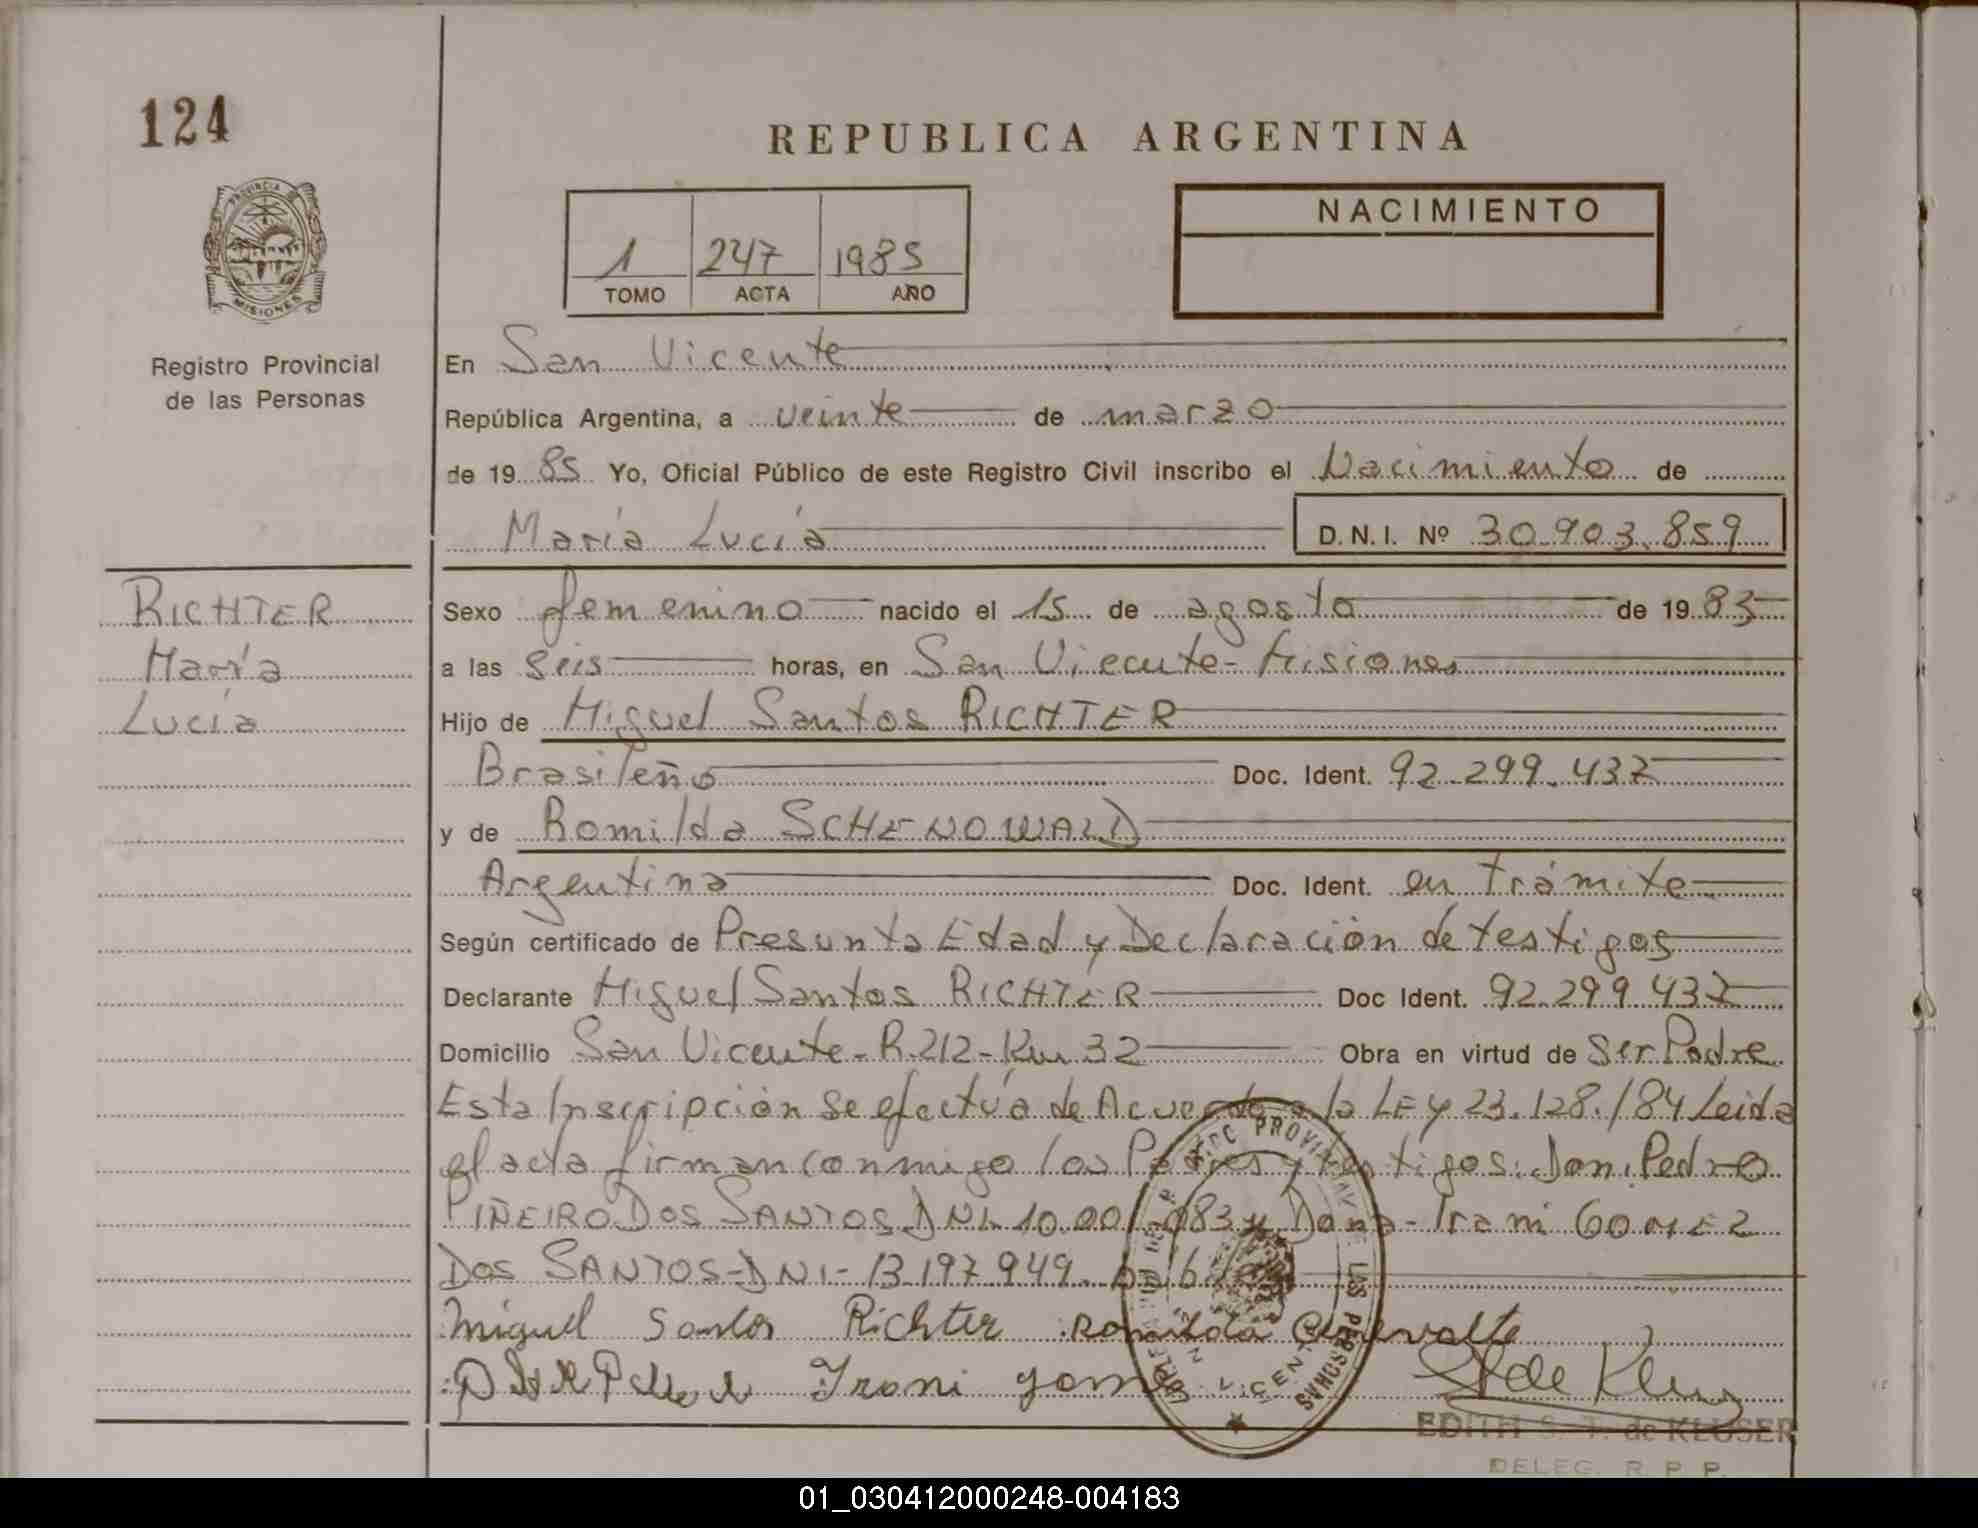 124
REPUBLICA ARGENTINA
PROVINCIA
MISIONES
Registro Provincial
de las Personas
1 247 1985
TOMO ACTA AÑO
NACIMIENTO
En San Vicente
República Argentina, a veinte de marzo
de 1985 Yo, Oficial Público de este Registro Civil inscribo el Nacimiento de
María Lucía D.N.I. Nº 30.903.859
RICHTER
María
Lucía
Sexo femenino nacido el 15 de agosto de 1983
a las seis horas, en San Vicente - Misiones
Hijo de Miguel Santos RICHTER
Brasileño Doc. Ident. 92.299.437
y de Romilda SCHENOWALD
Argentina Doc. Ident. en trámite
Según certificado de Presunta Edad y Declaración de testigos
Declarante Miguel Santos RICHTER Doc Ident. 92.299.437
Domicilio San Vicente - R.212 - Km 32 Obra en virtud de Ser Padre
Esta Inscripción se efectúa de Acuerdo a la LEY 23.128./84 Leida
el acta firman conmigo los Padres y testigos: Don. Pedro
PIÑEIRO DOS SANTOS DNI. 10.001.083 y Doña - Irani GOMEZ
DOS SANTOS - DNI - 13.197.949.
Miguel Santos Richter Romilda
Irani gomes
LAS PERSONAS
EDITH S. T. de KLUSER
DELEG. R. P. P.
01_030412000248-004183